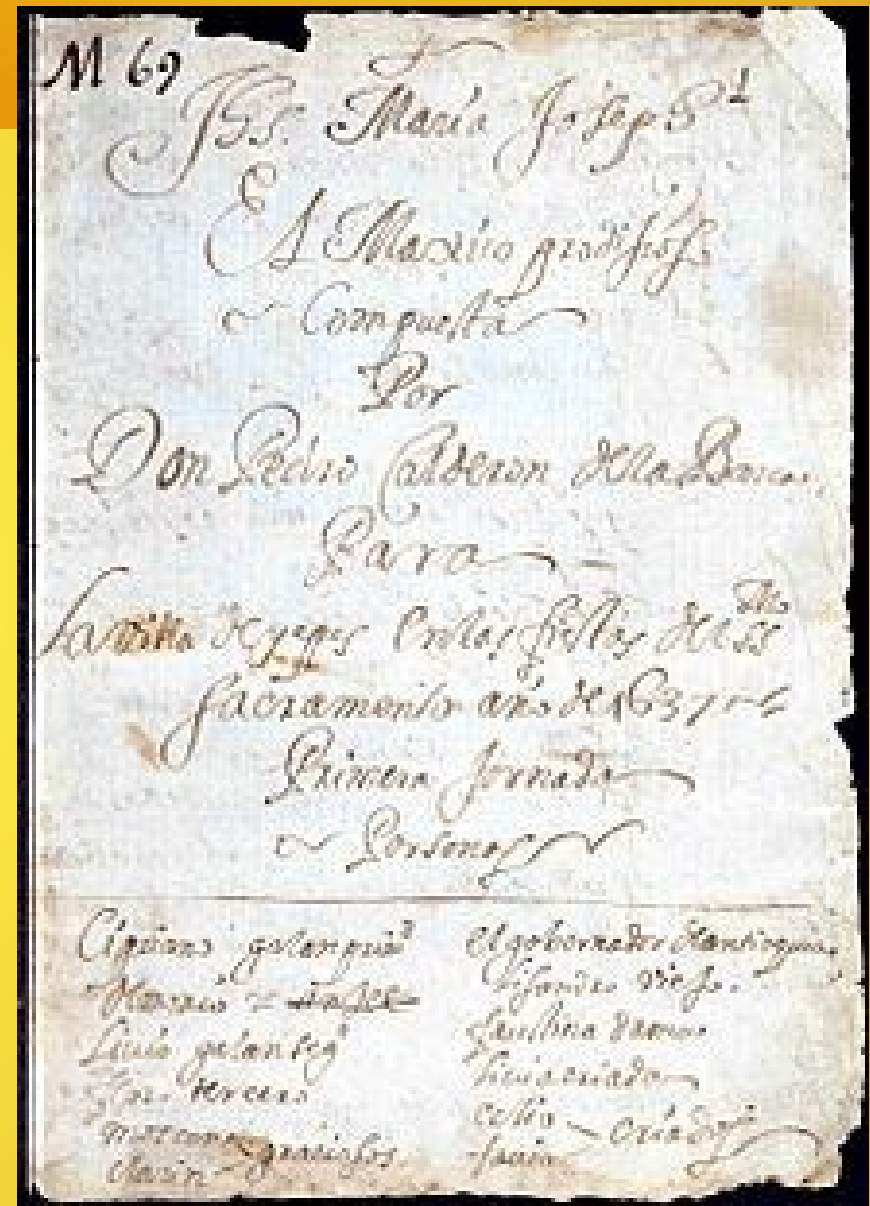 M 69
Jhs. Maria Joseph
El Maxico prodijioso
Compuesta
Por
Don Pedro Calderon de la Barca
Para
La villa de yepes en las fiestas del SSmo
Sacramento año de 1637
Primera Jornada
Personas
Cipriano galan
Demonio
Lelio galan seg
Floro tercero
moscon
clarin graciosos
el gobernador de antioquia
Lisandro viejo
faustina dama
criado
celio
criados